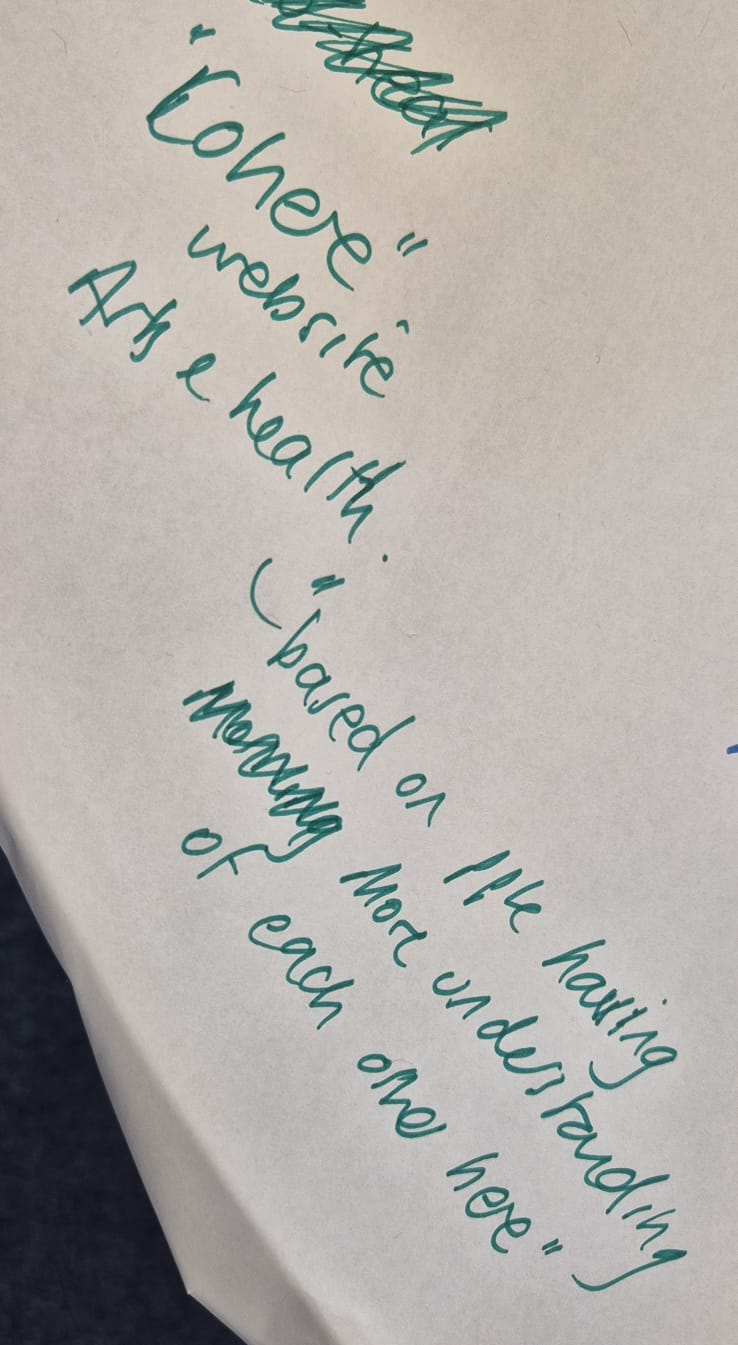 "Cohere"
website
Arts & health.
("based on pple having
more understanding
of each one here")